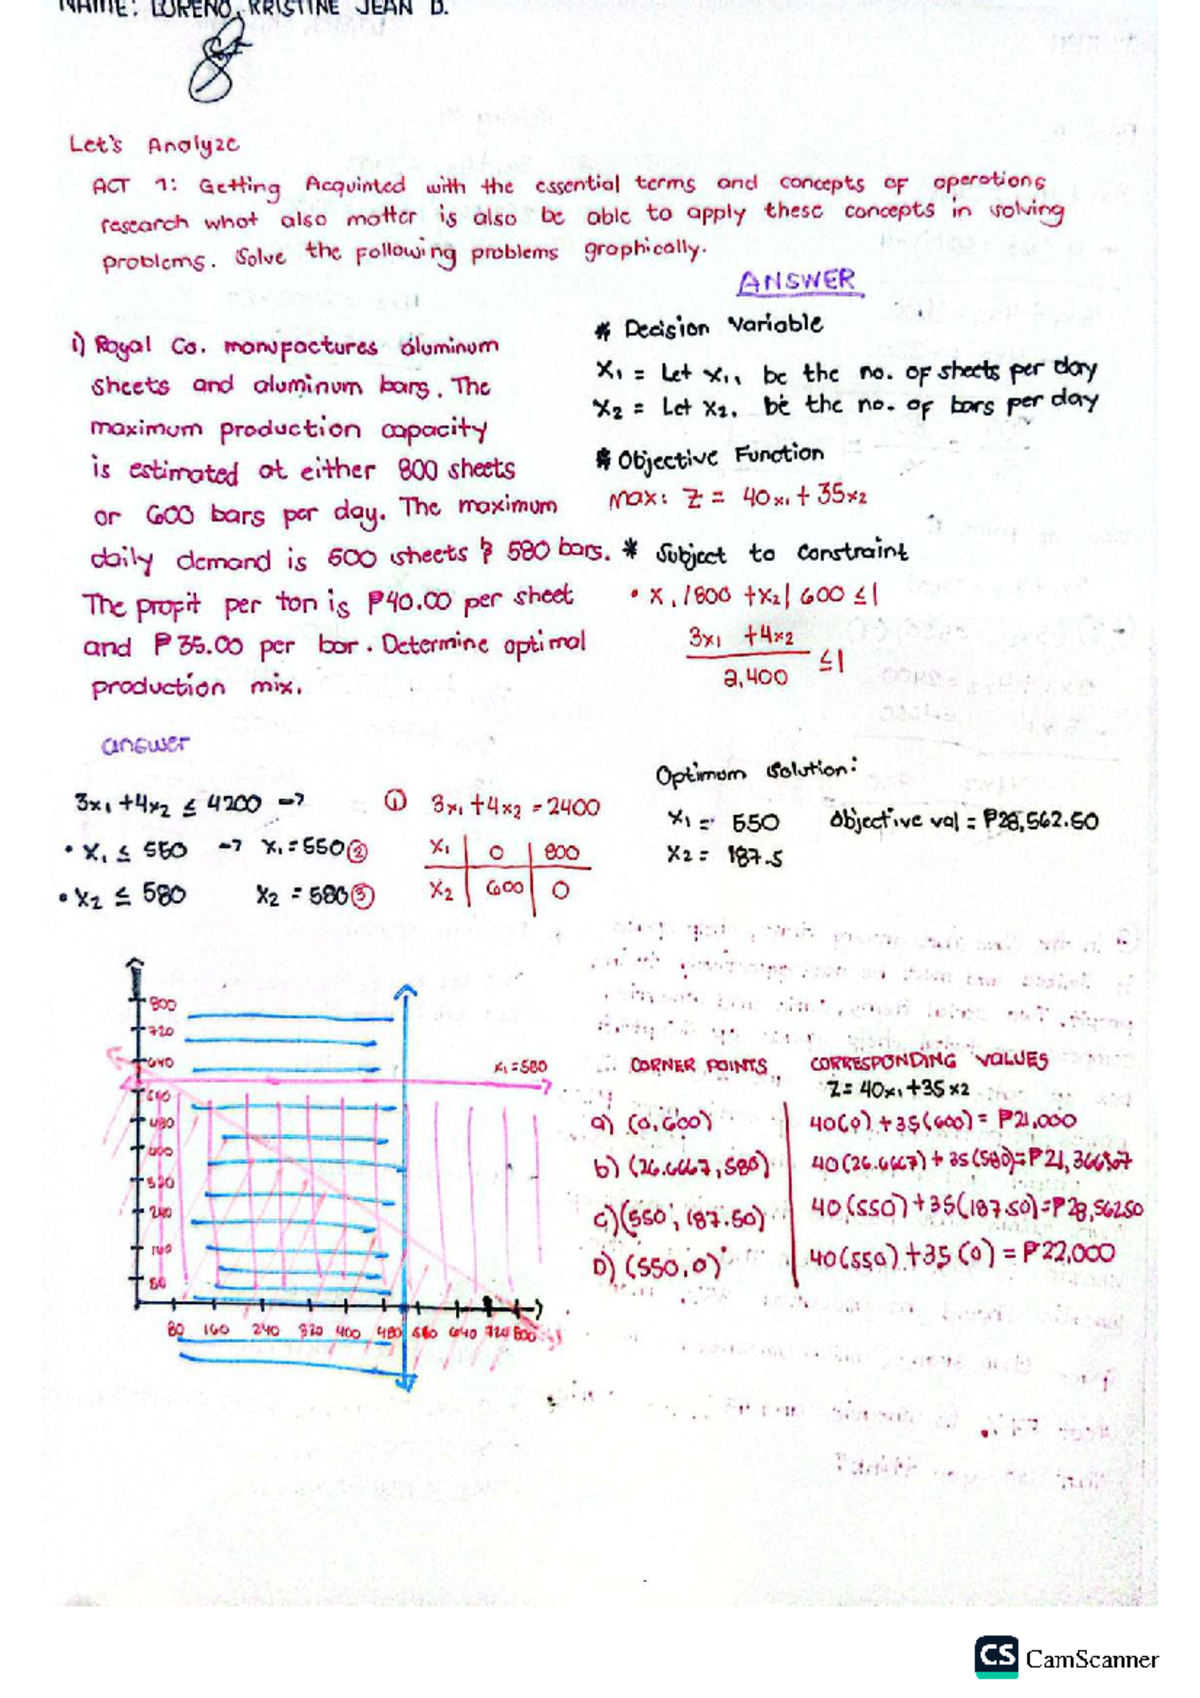 NAME: LORENO, KRISTINE JEAN D.
Let's Analyze
ACT 1: Getting Acquinted with the essential terms and concepts of operations
research what also matter is also be able to apply these concepts in solving
problems. Solve the following problems graphically.
ANSWER
1) Royal Co. manufactures aluminum
sheets and aluminum bars. The
maximum production capacity
is estimated at either 800 sheets
or 600 bars per day. The maximum
daily demand is 500 sheets & 580 bars.
The profit per ton is ₱40.00 per sheet
and ₱35.00 per bar. Determine optimal
production mix.
* Decision Variable
X₁ = Let X₁, be the no. of sheets per day
X₂ = Let X₂, be the no. of bars per day
* Objective Function
Max: Z = 40x₁ + 35x₂
* Subject to constraint
• X₁/800 + X₂/600 ≤ 1
3x₁ + 4x₂
2,400
≤ 1
answer
3x₁ + 4x₂ ≤ 4200 →
• X₁ ≤ 550 → X₁ = 550 ②
• X₂ ≤ 580 X₂ = 580 ③
① 3x₁ + 4x₂ = 2400
X₁ 0 800
X₂ 600 0
Optimum solution:
X₁ = 550 Objective val = ₱28,562.50
X₂ = 187.5
800
720
640
480
400
240
80
X₁ = 580
80 160 240 320 400 480 560 640 720 800
CORNER POINTS CORRESPONDING VALUES
Z = 40x₁ + 35x₂
a) (0, 600) 40(0) + 35(600) = ₱21,000
b) (26.6667, 580) 40(26.6667) + 35(580) = ₱21,366.67
c) (550, 187.50) 40(550) + 35(187.50) = ₱28,562.50
D) (550, 0) 40(550) + 35(0) = ₱22,000
CS CamScanner